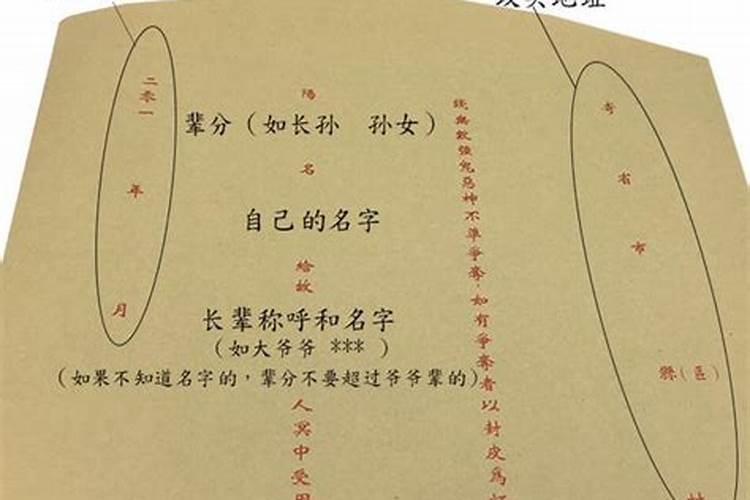 地址
寄 省 市 縣(區) 村
錢無數強鬼惡神不準爭奪,如有爭奪者以封皮爲
陽
辈分(如长孙 孙女)
名
自己的名字
給故
长辈称呼和名字
(如大爷爷 *** )
(如果不知道名字的,辈分不要超过爷爷辈的)
人冥中受用
二零一 年 月